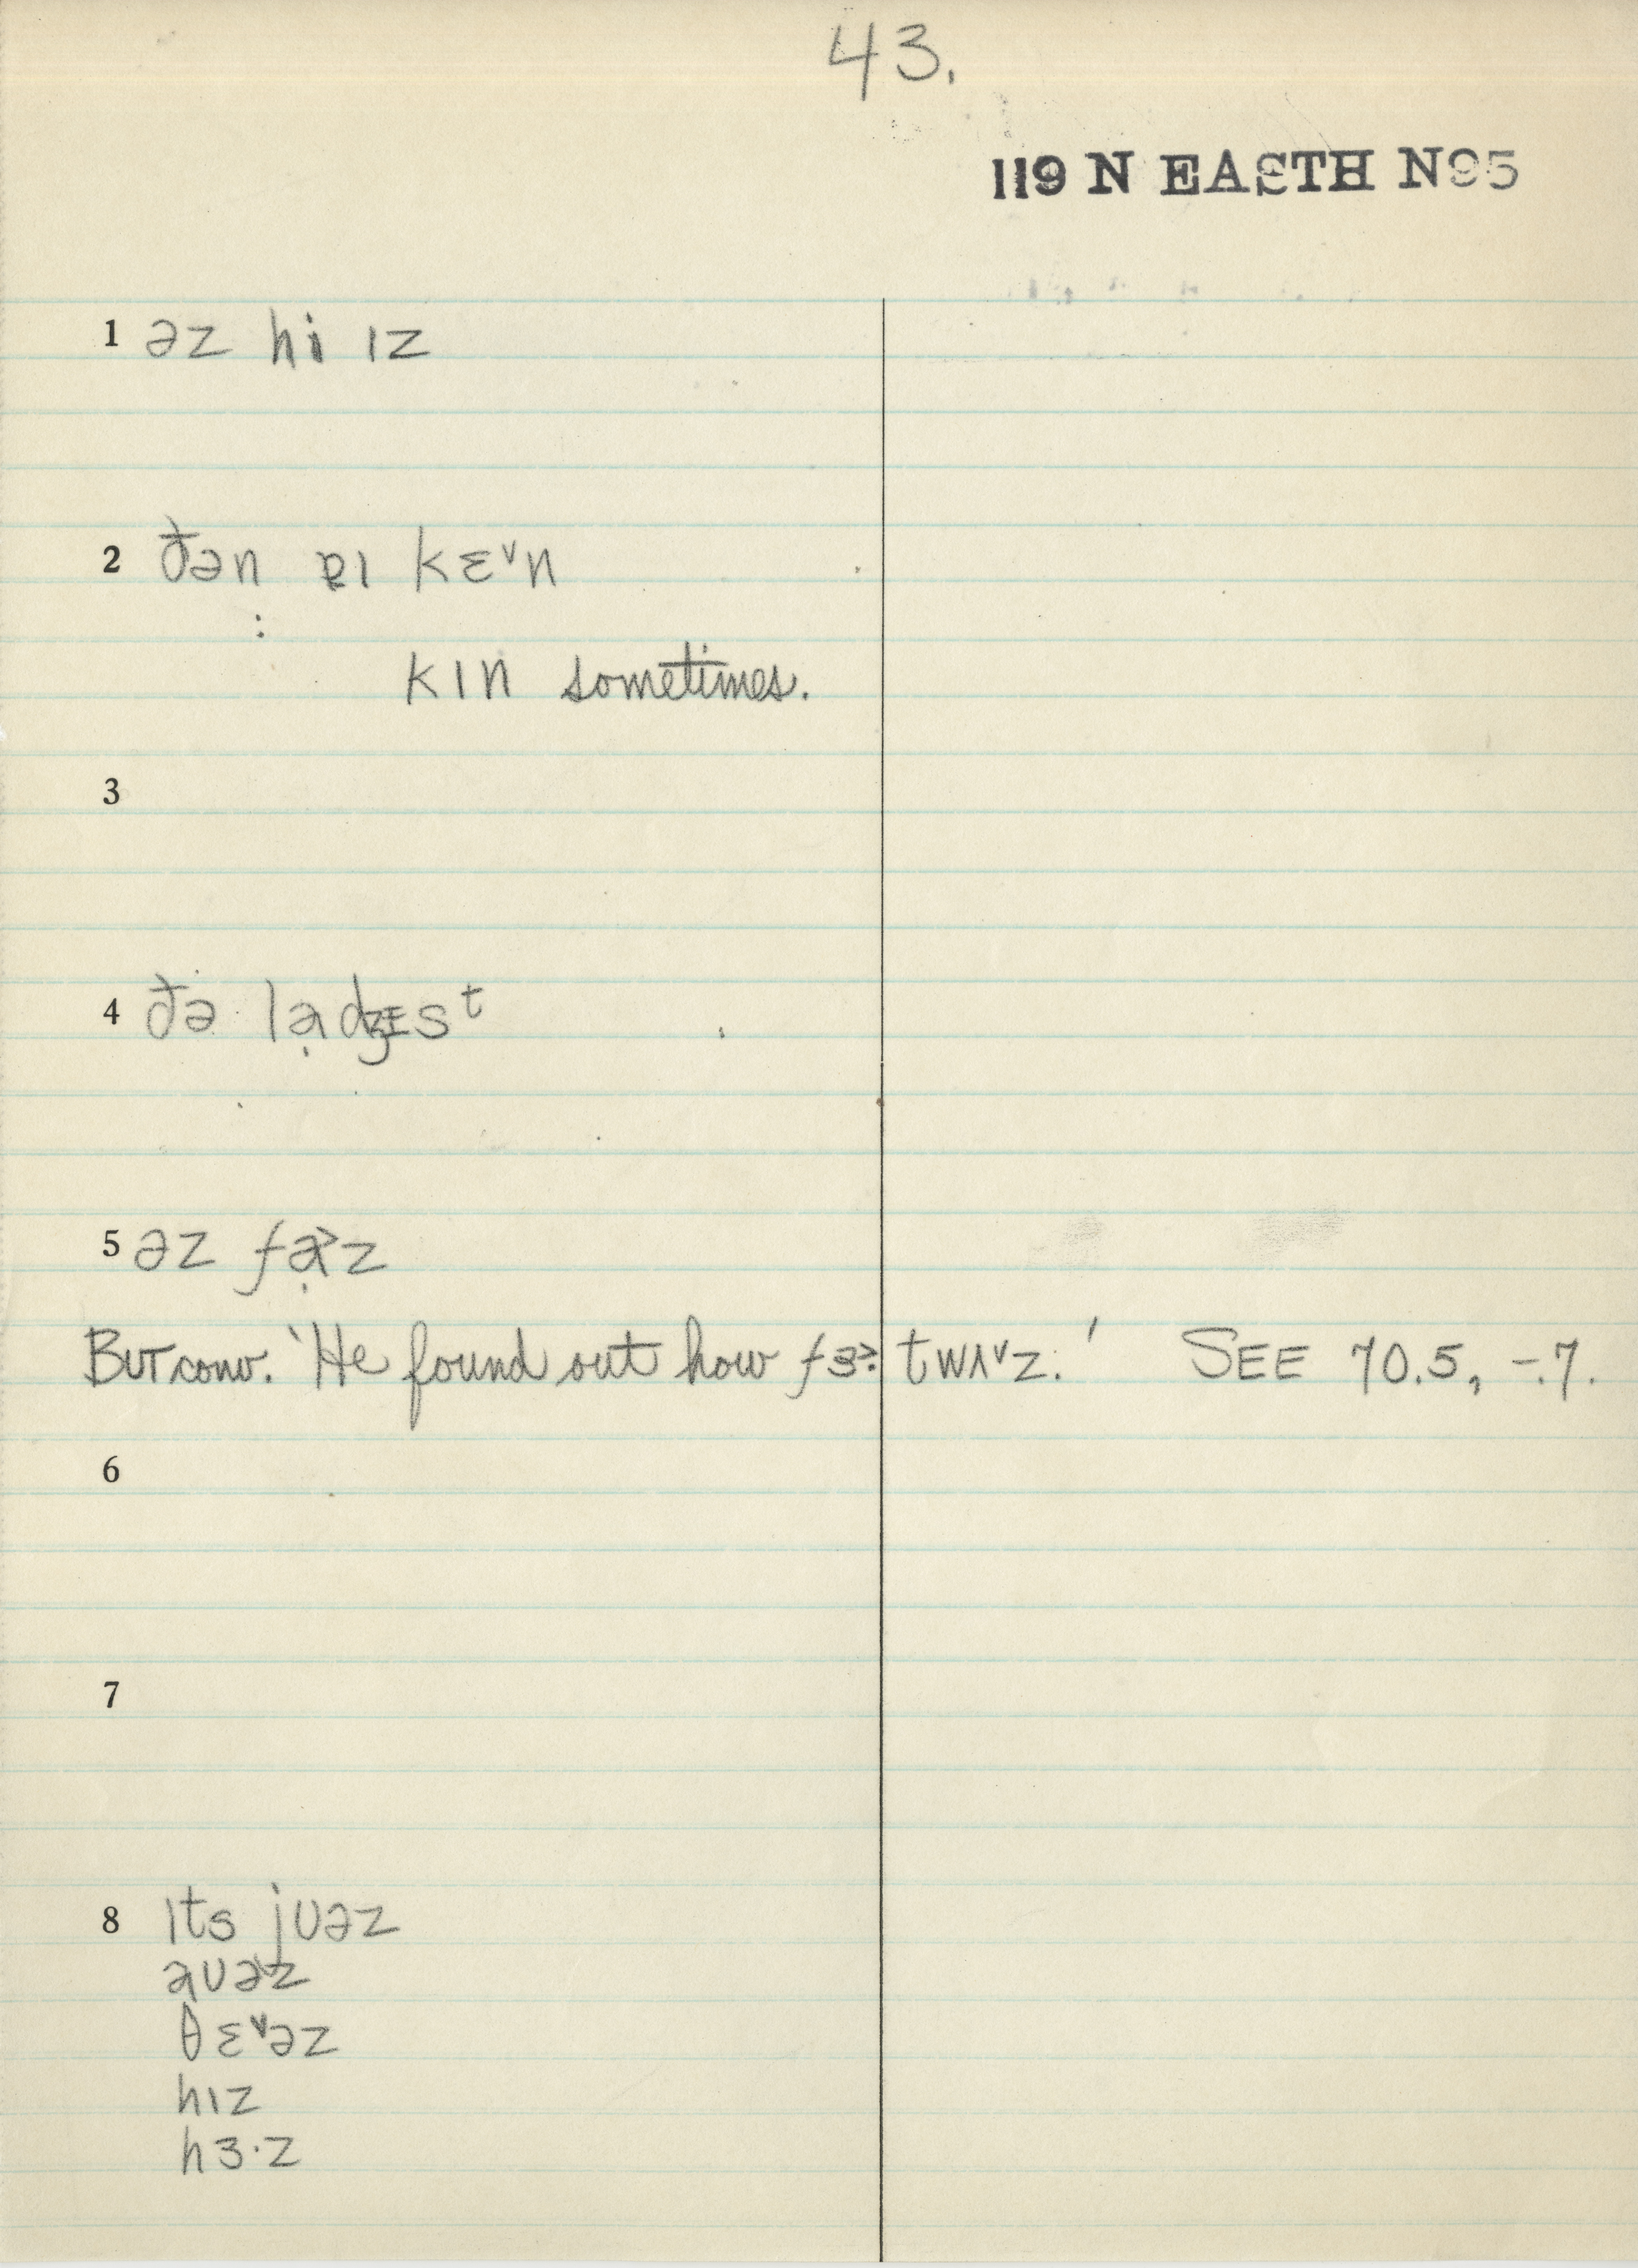 43.
119 N EASTH N95
1 əz hi ɪz
2 ðən ɐɪ kɛ˅n
:
kɪn sometimes.
3
4 ðə lạdʒɛsᵗ
5 əz fạ˃z
But conv. 'He found out how fɜ˃: twʌ˅z.' SEE 70.5, -.7.
6
7
8 ɪts jʊəz
aʊəz
θɛ˅əz
hɪz
hɜ·z